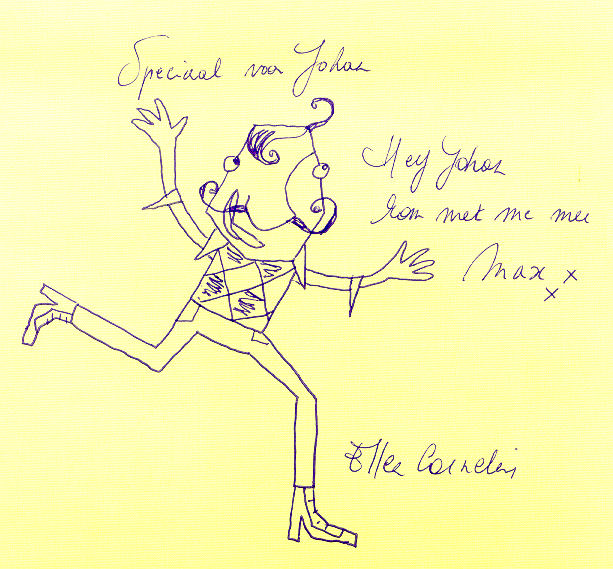 Speciaal voor Johan
Hey Johan
kom met me mee
Max xx
Ellen Cornelis